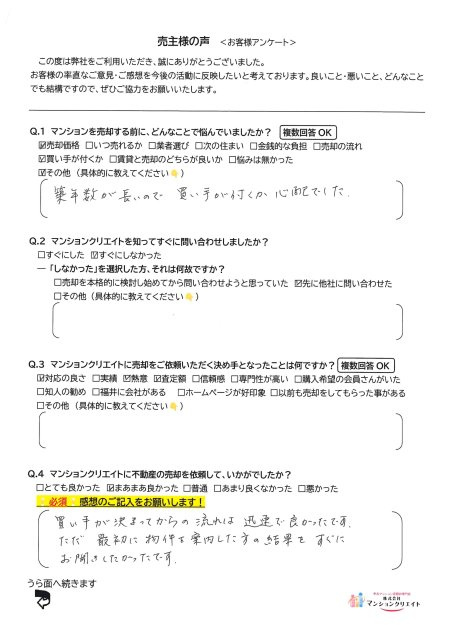 売主様の声 <お客様アンケート>
この度は弊社をご利用いただき、誠にありがとうございました。
お客様の率直なご意見・ご感想を今後の活動に反映したいと考えております。良いこと・悪いこと、どんなこと
でも結構ですので、ぜひご協力をお願いいたします。
Q.1 マンションを売却する前に、どんなことで悩んでいましたか？ 複数回答OK
☑売却価格 □いつ売れるか □業者選び □次の住まい □金銭的な負担 □売却の流れ
☑買い手が付くか □賃貸と売却のどちらが良いか □悩みは無かった
☑その他（具体的に教えてください👇）
築年数が長いので 買い手が付くか心配でした.
Q.2 マンションクリエイトを知ってすぐに問い合わせしましたか？
□すぐにした ☑すぐにしなかった
―「しなかった」を選択した方、それは何故ですか？
□売却を本格的に検討し始めてから問い合わせようと思っていた ☑先に他社に問い合わせた
□その他（具体的に教えてください👇）
Q.3 マンションクリエイトに売却をご依頼いただく決め手となったことは何ですか？ 複数回答OK
☑対応の良さ □実績 ☑熱意 ☑査定額 □信頼感 □専門性が高い □購入希望の会員さんがいた
□知人の勧め □福井に会社がある □ホームページが好印象 □以前も売却をしてもらった事がある
□その他（具体的に教えてください👇）
Q.4 マンションクリエイトに不動産の売却を依頼して、いかがでしたか？
□とても良かった ☑まあまあ良かった □普通 □あまり良くなかった □悪かった
必須 感想のご記入をお願いします！
買い手が決まってからの流れは 迅速で良かったです.
ただ 最初に物件を案内した方の結果をすぐに
お聞きしたかったです.
うら面へ続きます
株式会社
マンションクリエイト